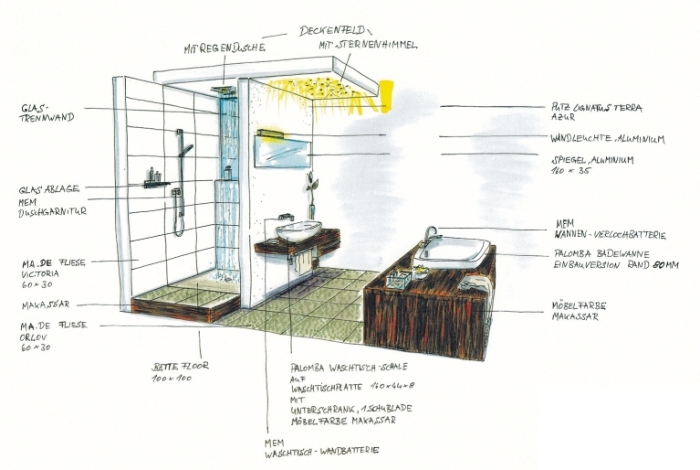 DECKENFELD
MIT REGENDUSCHE
MIT STERNENHIMMEL
GLAS-
TRENNWAND
GLAS ABLAGE
MEM
DUSCHGARNITUR
MA.DE FLIESE
VICTORIA
60 × 30
MAKASSAR
MA.DE FLIESE
ORLOV
60 × 30
BETTE FLOOR
100 × 100
PALOMBA WASCHTISCH-SCHALE
AUF
WASCHTISCHPLATTE 140×44×8
MIT
UNTERSCHRANK, 1.SCHUBLADE
MÖBELFARBE MAKASSAR
MEM
WASCHTISCH-WANDBATTERIE
PUTZ LIGNATUS TERRA
AZUR
WANDLEUCHTE, ALUMINIUM
SPIEGEL, ALUMINIUM
140 × 35
MEM
WANNEN-VERLOCHBATTERIE
PALOMBA BADEWANNE
EINBAUVERSION RAND 80MM
MÖBELFARBE
MAKASSAR